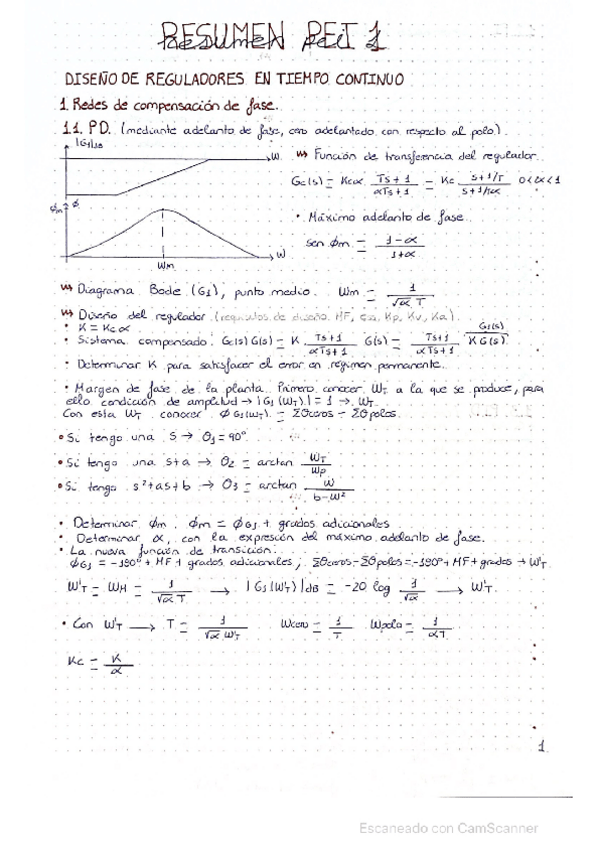 RESUMEN PEI 1
DISEÑO DE REGULADORES EN TIEMPO CONTINUO
1. Redes de compensación de fase.
1.1. PD. (mediante adelanto de fase, cero adelantado con respecto al polo).
|G1|dB
w
Función de transferencia del regulador.
Gc(s) = Kcα (Ts+1)/(αTs+1) = Kc (s+1/T)/(s+1/Tα) 0<α<1
ϕm ϕ
• Máximo adelanto de fase
sen ϕm = (1-α)/(1+α)
w
Wm
Diagrama Bode (G1), punto medio. Wm = 1/(√α T)
Diseño del regulador (requisitos de diseño. MF, Kp, Kv, Ka).
• K = Kc α
• Sistema compensado: Gc(s) G(s) = K (Ts+1)/(αTs+1) G(s) = (Ts+1)/(αTs+1) K G(s)
G1(s)
• Determinar K para satisfacer el error en régimen permanente.
• Margen de fase de la planta. Primero conocer WT a la que se produce, para
ello condición de amplitud → |G1(WT)| = 1 → WT
Con esta WT conocer ϕG1(WT) = Σθceros - Σθpolos.
• Si tengo una S → θ1 = 90°
• Si tengo una s+a → θ2 = arctan WT/Wp
• Si tengo s²+as+b → θ3 = arctan w/(b-w²)
• Determinar ϕm. ϕm = ϕG1 + grados adicionales
• Determinar α, con la expresión del máximo adelanto de fase.
• La nueva función de transición:
ϕG1 = -180° + MF + grados adicionales; Σθceros - Σθpolos = -180° + MF + grados → W'T
W'T = WM = 1/(√α T) → |G1(W'T)|dB = -20 log 1/√α → W'T.
• Con W'T → T = 1/(√α W'T) Wcero = 1/T Wpolo = 1/(αT)
Kc = K/α
1
Escaneado con CamScanner